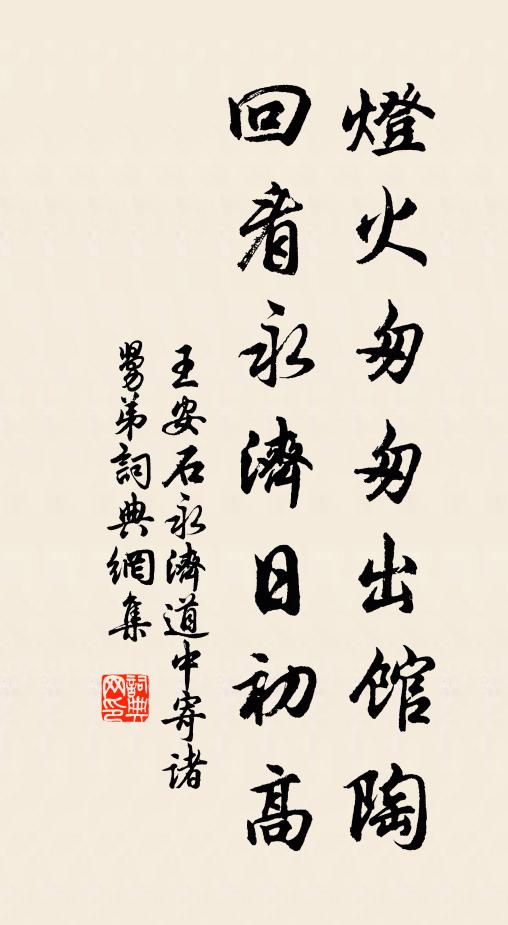 燈火匆匆出館陶
回看永濟日初高
王安石永濟道中寄諸
舅弟詞典網集
詞典網印